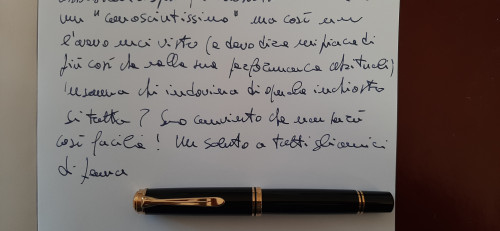 un "conosciutissimo" ma così non
l'avevo mai visto (e devo dire mi piace di
più così che nella sua performance abituale)
insomma chi indovina di quale inchiostro
si tratta? Sono convinto che non sarà
così facile! Un saluto a tutti gli amici
di penna